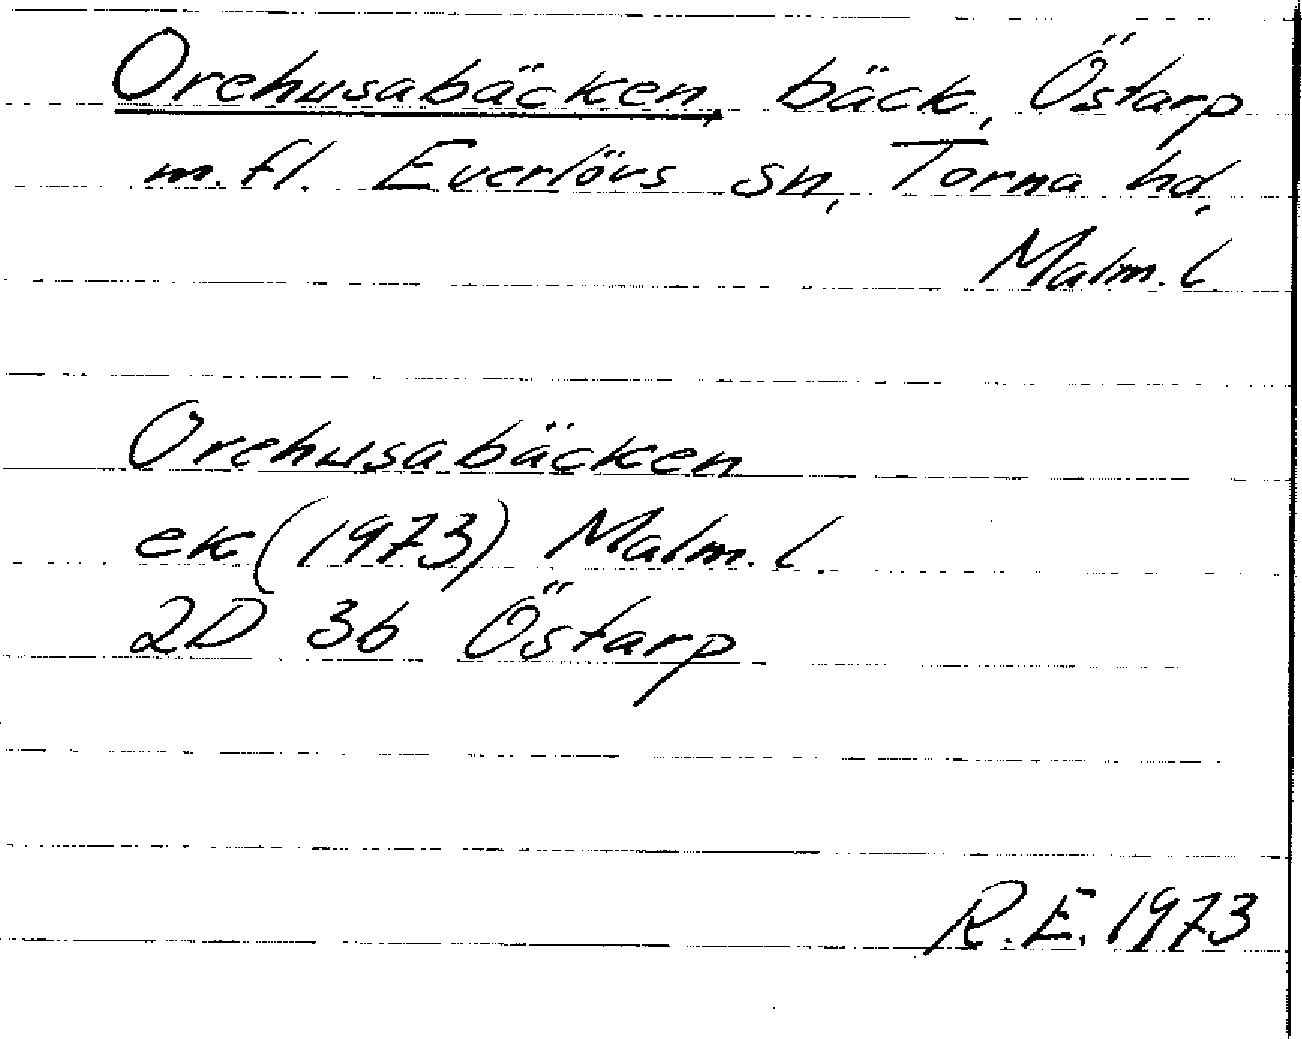 Orehusabäcken, bäck, Östarp
m.fl. Everlövs sn, Torna hd,
Malm. l.
Orehusabäcken
ek (1973) Malm. l.
2D 3b Östarp
R.E. 1973